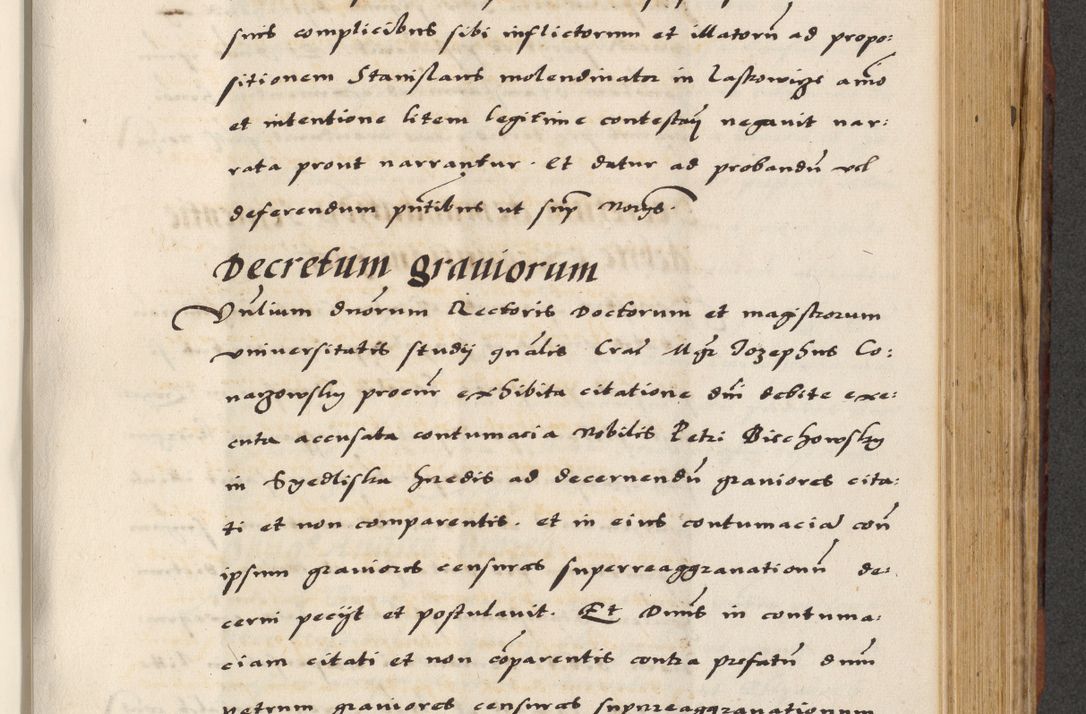 suis complicibus sibi inflictorum et illatorũ ad propo:
sitionem Stanislaus molendinator in Laskowize añ
et intentione litem legitime contestañ negauit nar:
rata prout narrantur. Et datur ad probandũ vel
deferendum pñtibus ut sup̃ Noñs.
Decretum grauiorum
Vñlium dnõrum Rectoris Doctorum et magistrorum
vniversitatis studij gnãlis Craẽ Mgr̃ Jozephus Co:
nazowsky procur̃ exhibita citatione dñi debite exe:
cuta accusata contumacia Nobilis Petri Bischowsky
in Syedliska hredis ad decernendũ grauiores cita:
ti et non comparentis. et in eius contumaciã con̄
ipsum grauiores censuras superreaggrauationũ de:
cerni pecijt et postulauit. Et Dñus in contuma:
ciam citati et non cõparentis contra prefatũ dnum
petrum grauiores censuras supnreaggrauationum